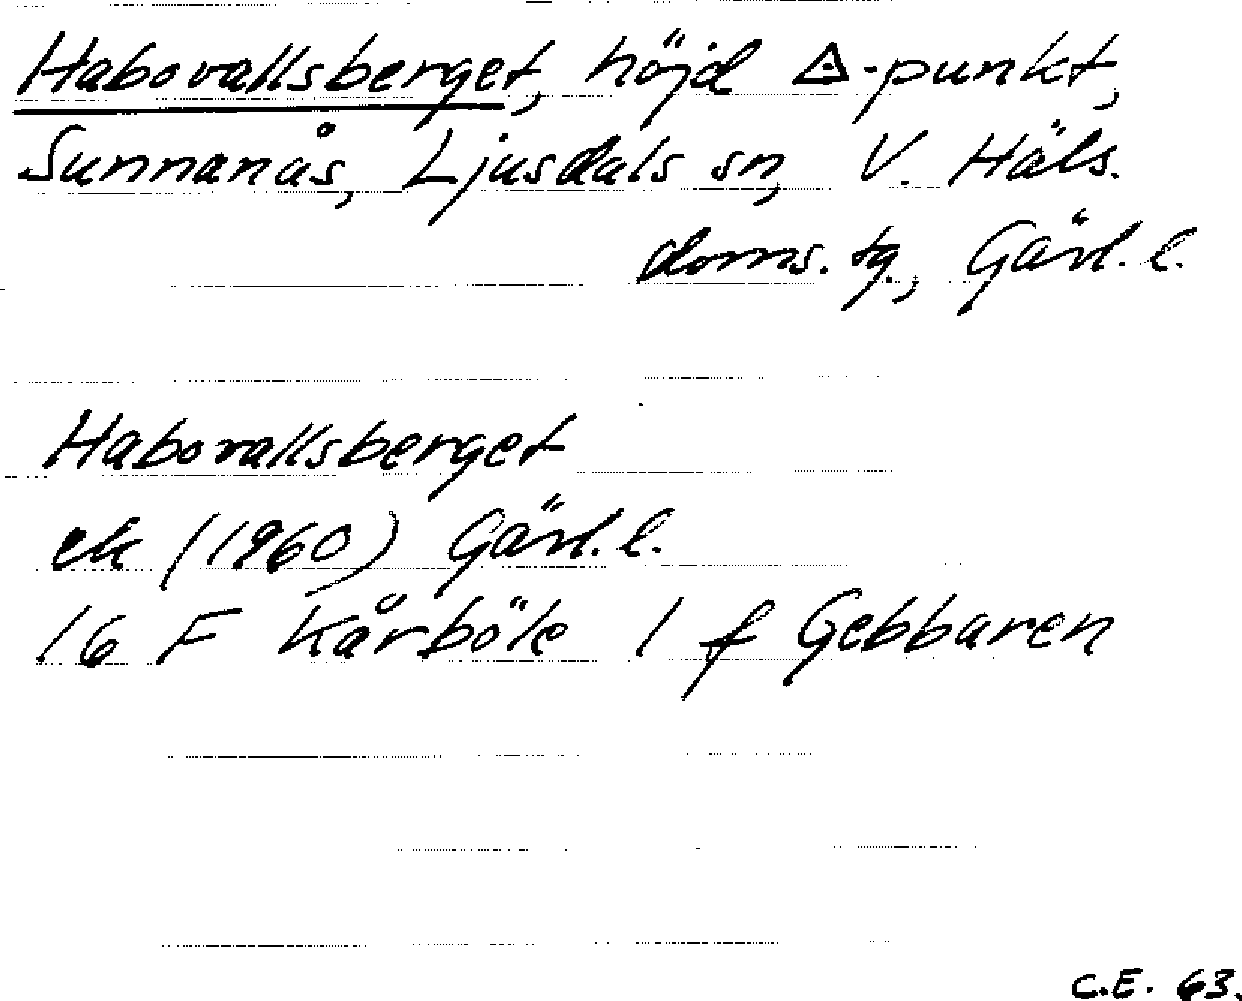 Habovallsberget, höjd △-punkt,
Sunnanås, Ljusdals sn, V. Häls.
doms. tg., Gävl. l.
Habovallsberget
ek (1960) Gävl. l.
16 F Kårböle 1 f Gebbaren
C.E. 63.